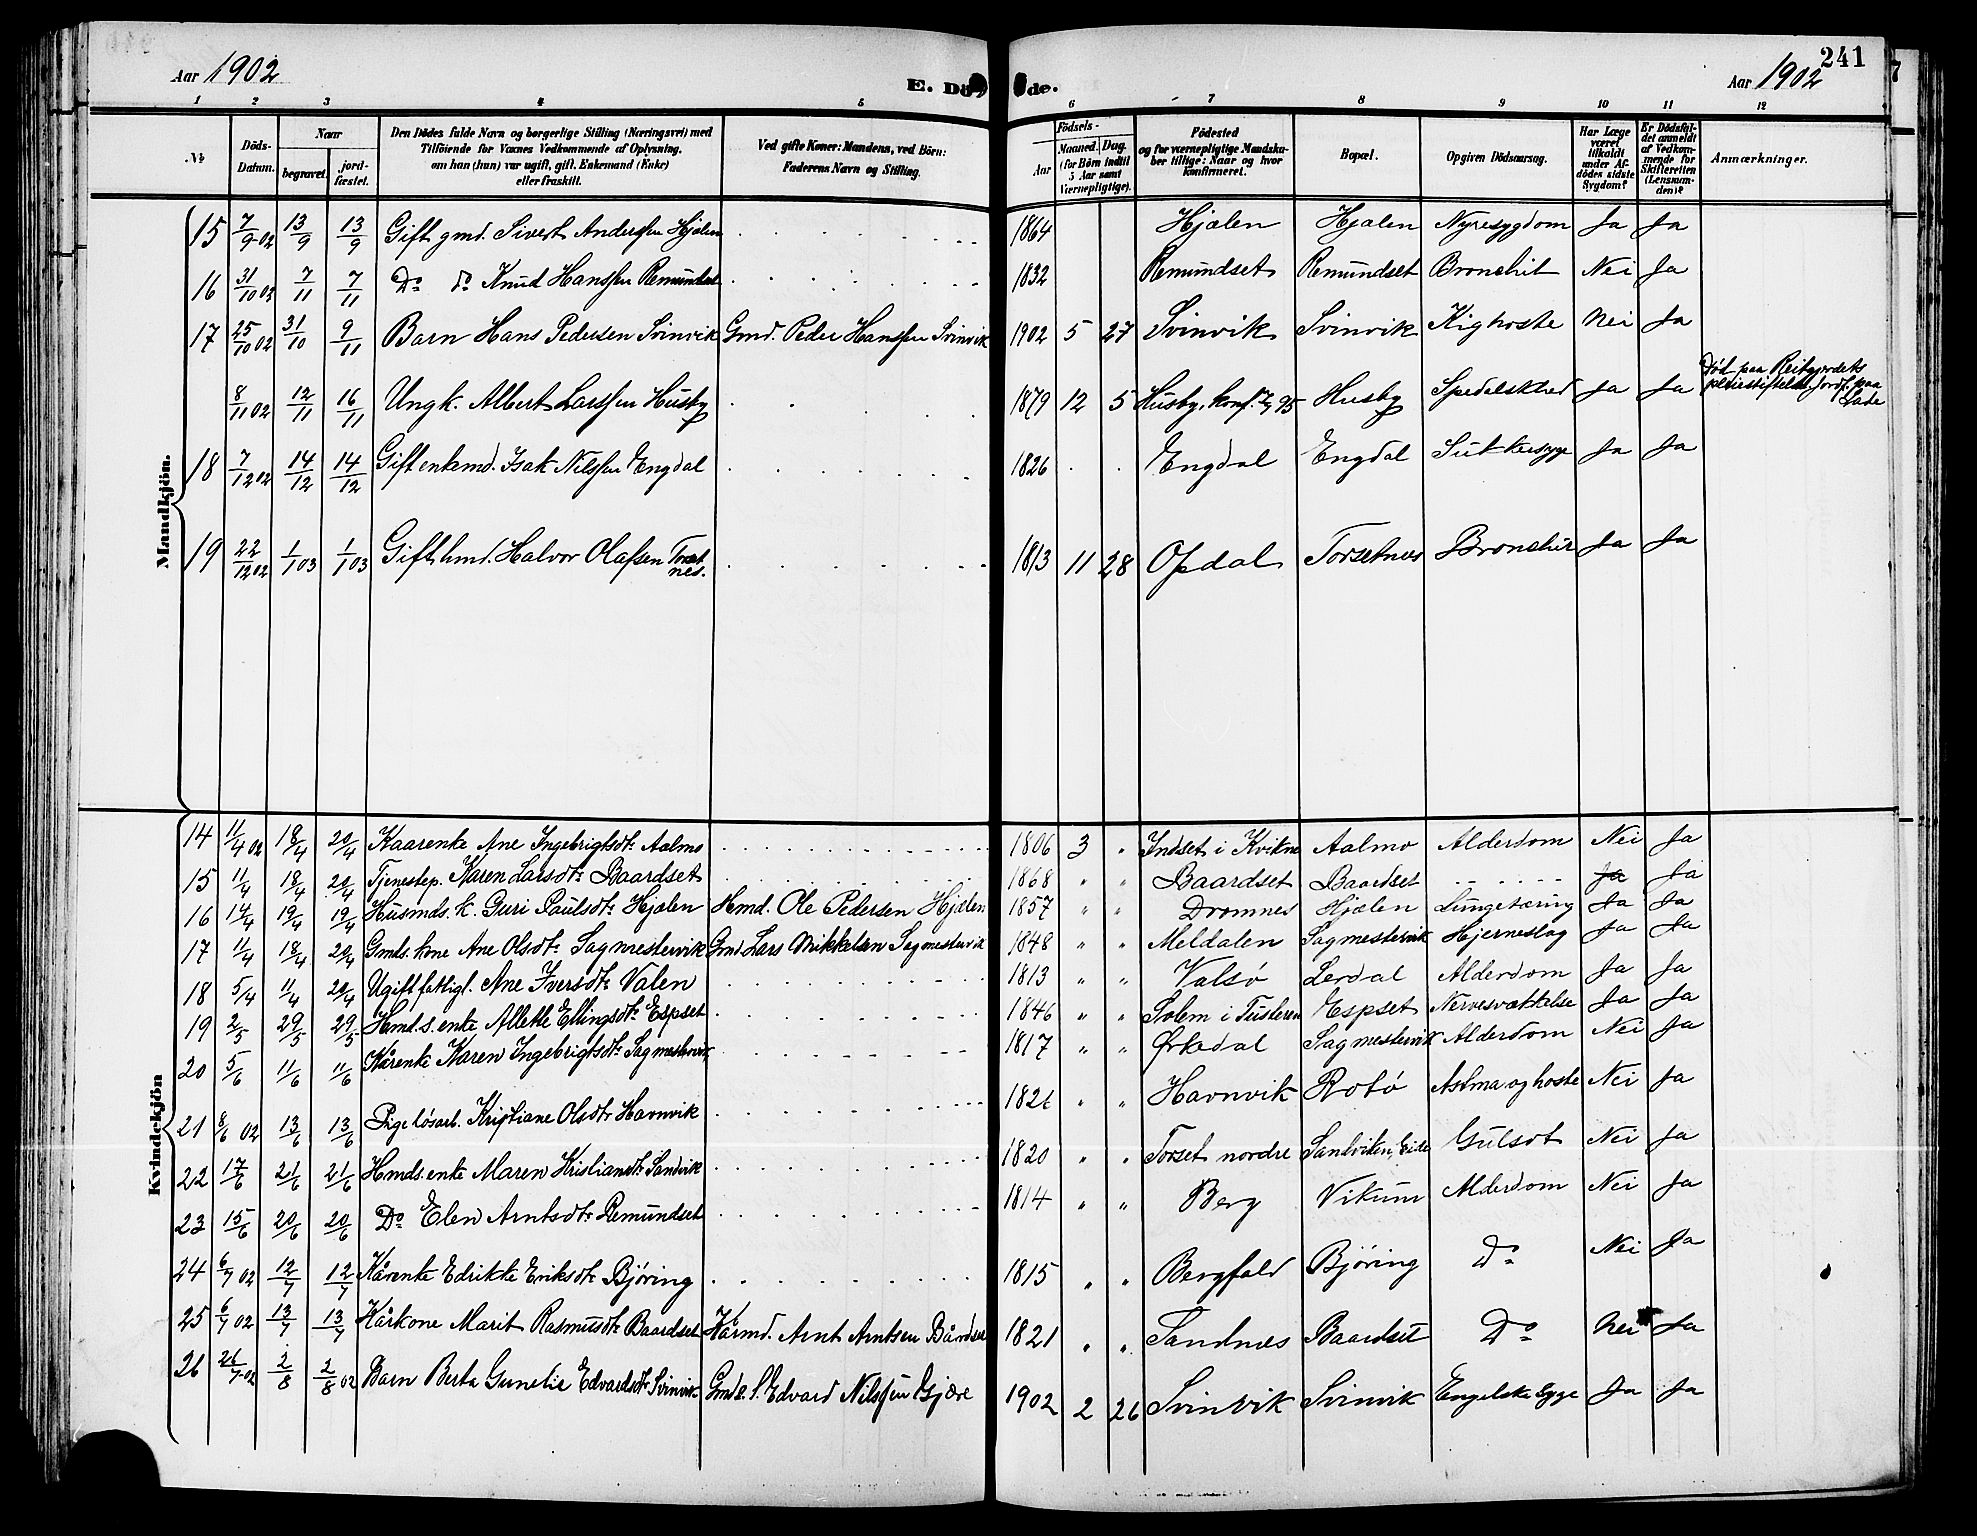 241
Aar 1902 E. Döde. Aar 1902
1 2 3 4 5 6 7 8 9 10 11 12
No. Döds-Datum. Naar begravet. jordfæstet. Den Dödes fulde Navn og borgerlige Stilling (Næringsvei) med Tilföiende for Voxnes Vedkommende af Oplysning, om han (hun) var ugift, gift, Enkemand (Enke) eller fraskilt. Ved gifte Koner: Mandens, ved Börn: Faderens Navn og Stilling. Födsels- Aar Maaned. Dag. (for Börn indtil 5 Aar samt Værnepligtige). Födested og for værnepligtige Mandskaber tillige: Naar og hvor konfirmeret. Bopæl. Opgiven Dödsaarsag. Har Læge været tilkaldt under Afdödes sidste Sygdom? Er Dödsfaldet anmeldt af Vedkommende for Skifteretten (Lensmanden)? Anmærkninger.
Mandkjön.
15 7/9 02 13/9 13/9 Gift gmd. Sivert Anderssen Hjælen 1864 Hjælen Hjælen Nyresygdom Ja Ja
16 31/10 02 7/11 7/11 Do do Knud Hanssen Remundset 1832 Remundset Remundset Bronchit Nei Ja
17 25/10 02 31/10 9/11 Barn Hans Pedersen Svinvik Gmd. Peder Hanssen Svinvik 1902 5 27 Svinvik Svinvik Kighoste Nei Ja
8/11 02 12/11 16/11 Ungk. Albert Larssen Husby 1879 12 5 Husby, konf. 95 Husby Spedalskhed Ja Ja Död paa Reitgjerdets pleiestiftelse. Jordf. paa Lade
18 7/12 02 14/12 14/12 Gift enkmd. Isak Nilssen Engdal 1826 Engdal Engdal Sukkersyge Ja Ja
19 22/12 02 1/1 03 1/1 03 Gift hmd. Halvor Olafsen Torsetnes. 1813 11 28 Opdal Torsetnes Bronchit Ja Ja
Kvindekjön
14 11/4 02 18/4 20/4 Kaarenke Ane Ingebrigtsdt: Aalmo 1806 3 " Indset i Kvikne Aalmo Alderdom Nei Ja
15 11/4 18/4 20/4 Tjenestep. Karen Larsdt: Baardset 1868 " " Baardset Baardset Ja Ja
16 14/4 19/4 19/4 Husmds. k. Guri Paulsdt: Hjælen Hmd. Ole Pedersen Hjælen 1857 " " Dromnes Hjælen Lungetæring Ja Ja
17 11/4 18/4 20/4 Gmds. kone Ane Olsdt: Sagmestervik Gmd Lars Mikkelsen Sagmestervik 1848 " " Meldalen Sagmestervik Hjerneslag Ja Ja
18 5/4 11/4 20/4 Ugift fattigl. Ane Iversdt: Valen 1813 " " Valsø Lerdal Alderdom Ja Ja
19 2/5 29/5 29/5 Hmd.s. enke Allette Ellingsdt: Espset 1846 " " Solem i Tusteren Espset Nervesvækkelse Ja Ja
20 5/6 11/6 11/6 Kårenke Karen Ingebrigtsdt: Sagmestervik 1817 " " Ørkedal Sagmestervik Alderdom Nei Ja
21 8/6 02 13/6 13/6 Pige løsarb. Kristiane Olsdt: Havnvik 1826 " " Havnvik Rotø Astma og hoste Nei Ja
22 17/6 21/6 21/6 Hmds. enke Maren Kristiansdt: Sandvik 1820 " " Torset nordre Sandviken, Eide Gulsot Nei Ja
23 15/6 20/6 20/6 Do Elen Arntsdt: Remundset 1814 " " Berg Vikum Alderdom Nei Ja
24 6/7 02 12/7 12/7 Kårenke Edrikke Eriksdt: Bjøring 1815 " " Bergfald Bjøring Do Nei Ja
25 6/7 02 13/7 13/7 Kårkone Marit Rasmusdt: Baardset Kårmd. Arnt Arntsen Bårdset 1821 " " Sandnes Baardset Do Nei Ja
26 26/7 02 2/8 2/8 02 Barn Berta Gunelie Edvardsdt: Svinvik Gmds. S. Edvard Nilssen Gjøre 1902 2 26 Svinvik Svinvik Engelske syge Ja Ja